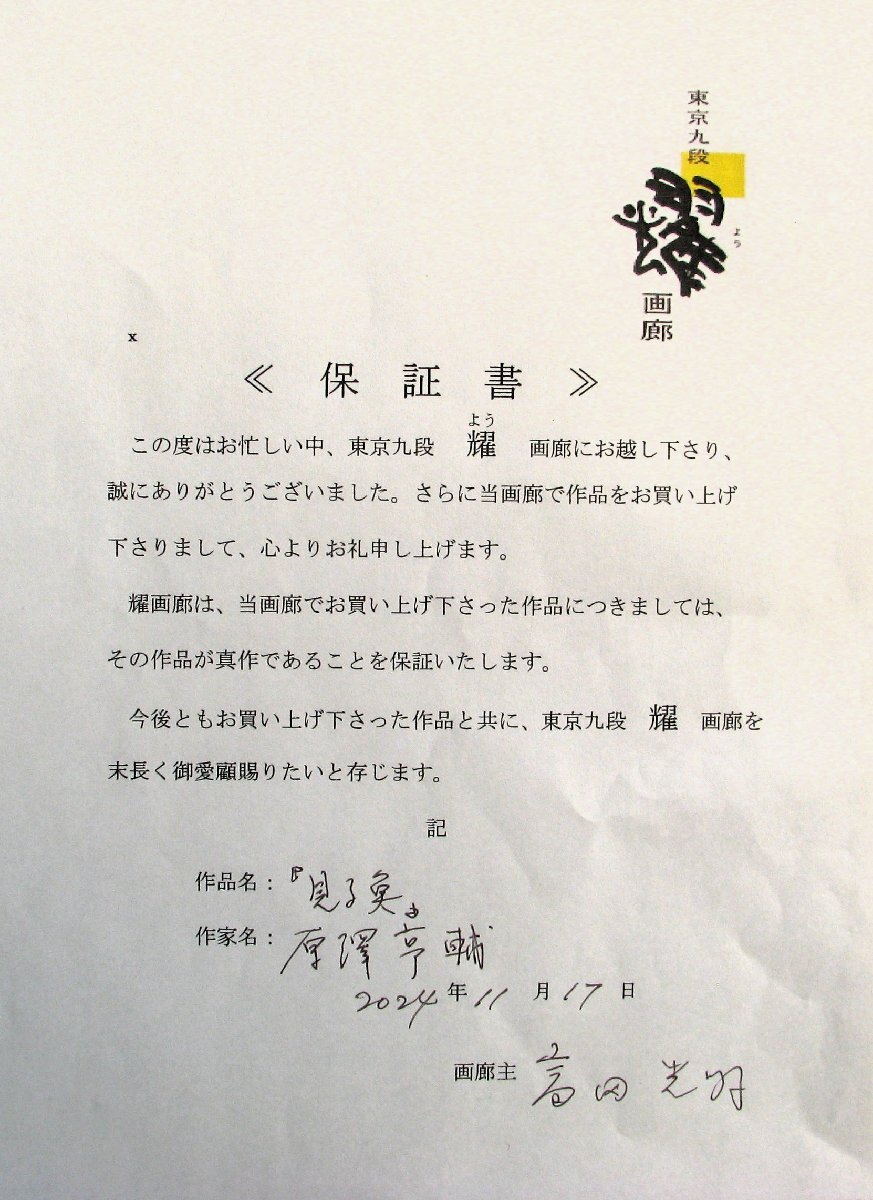 東京九段
耀
よう
画廊
x
≪ 保 証 書 ≫
よう
この度はお忙しい中、東京九段 耀 画廊にお越し下さり、
誠にありがとうございました。さらに当画廊で作品をお買い上げ
下さりまして、心よりお礼申し上げます。
耀画廊は、当画廊でお買い上げ下さった作品につきましては、
その作品が真作であることを保証いたします。
今後ともお買い上げ下さった作品と共に、東京九段 耀 画廊を
末長く御愛顧賜りたいと存じます。
記
作品名：『見る魚』
作家名：原澤亨輔
2024年11月17日
画廊主 高田光